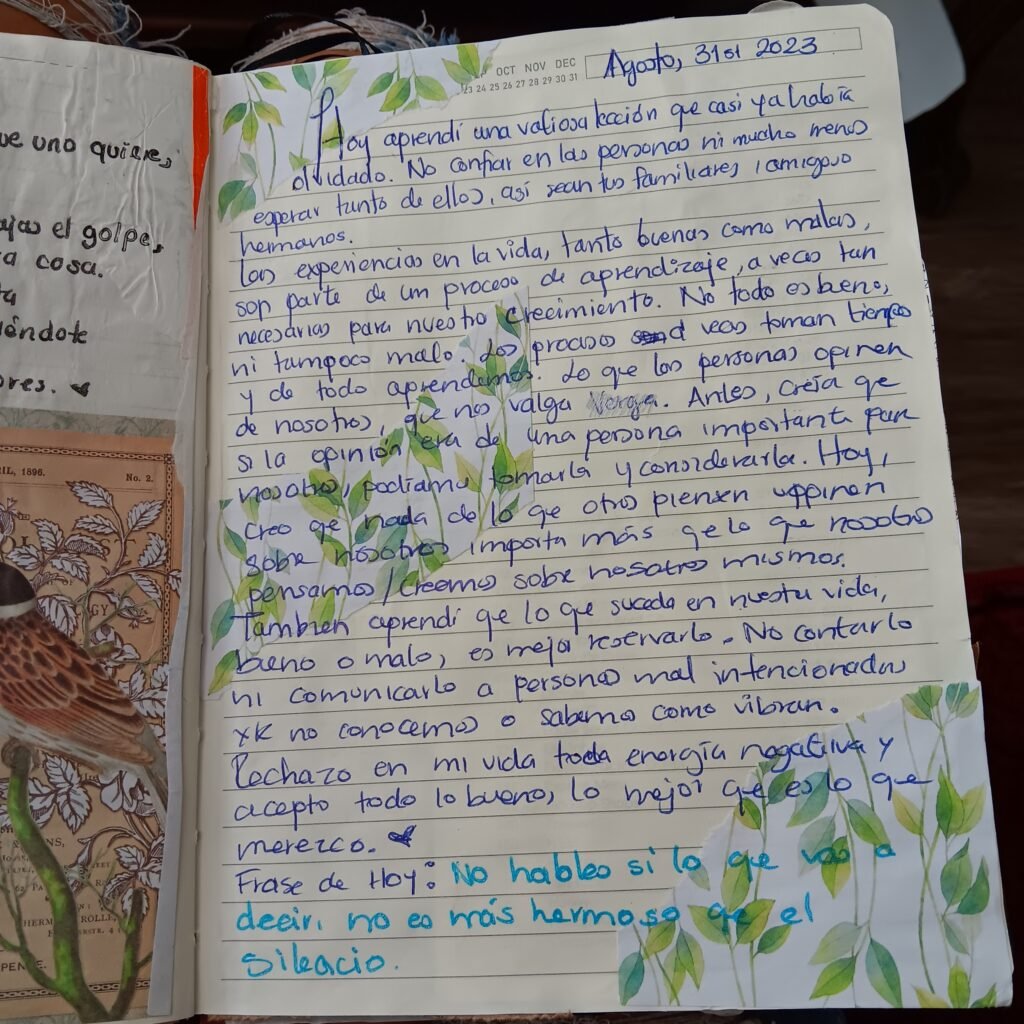 ue uno quiere,
ajas el golpe,
a cosa.
ta
iéndote
ores.
RIL, 1896.
No. 2.
OCT NOV DEC
23 24 25 26 27 28 29 30 31
Agosto, 31st 2023
Hoy aprendí una valiosa lección que casi ya había
olvidado. No confiar en las personas ni mucho menos
esperar tanto de ellos, así sean tus familiares, amigos o
hermanos.
Las experiencias en la vida, tanto buenas como malas,
son parte de un proceso de aprendizaje, a veces tan
necesarias para nuestro crecimiento. No todo es bueno,
ni tampoco malo. Los procesos a veces toman tiempo
y de todo aprendemos. Lo que las personas opinen
de nosotros, que nos valga Verga. Antes, creía que
si la opinión era de una persona importante para
nosotros, podíamos tomarla y considerarla. Hoy,
creo qe nada de lo que otros piensen u opinen
sobre nosotros importa más qe lo que nosotros
pensamos/creemos sobre nosotros mismos.
También aprendí qe lo que suceda en nuestra vida,
bueno o malo, es mejor reservarlo. No contarlo
ni comunicarlo a personas mal intencionadas
xk no conocemos o sabemos como vibran.
Rechazo en mi vida toda energía negativa y
acepto todo lo bueno, lo mejor qe es lo que
merezco.
Frase de Hoy: No hables si lo que vas a
decir, no es más hermoso qe el
silencio.